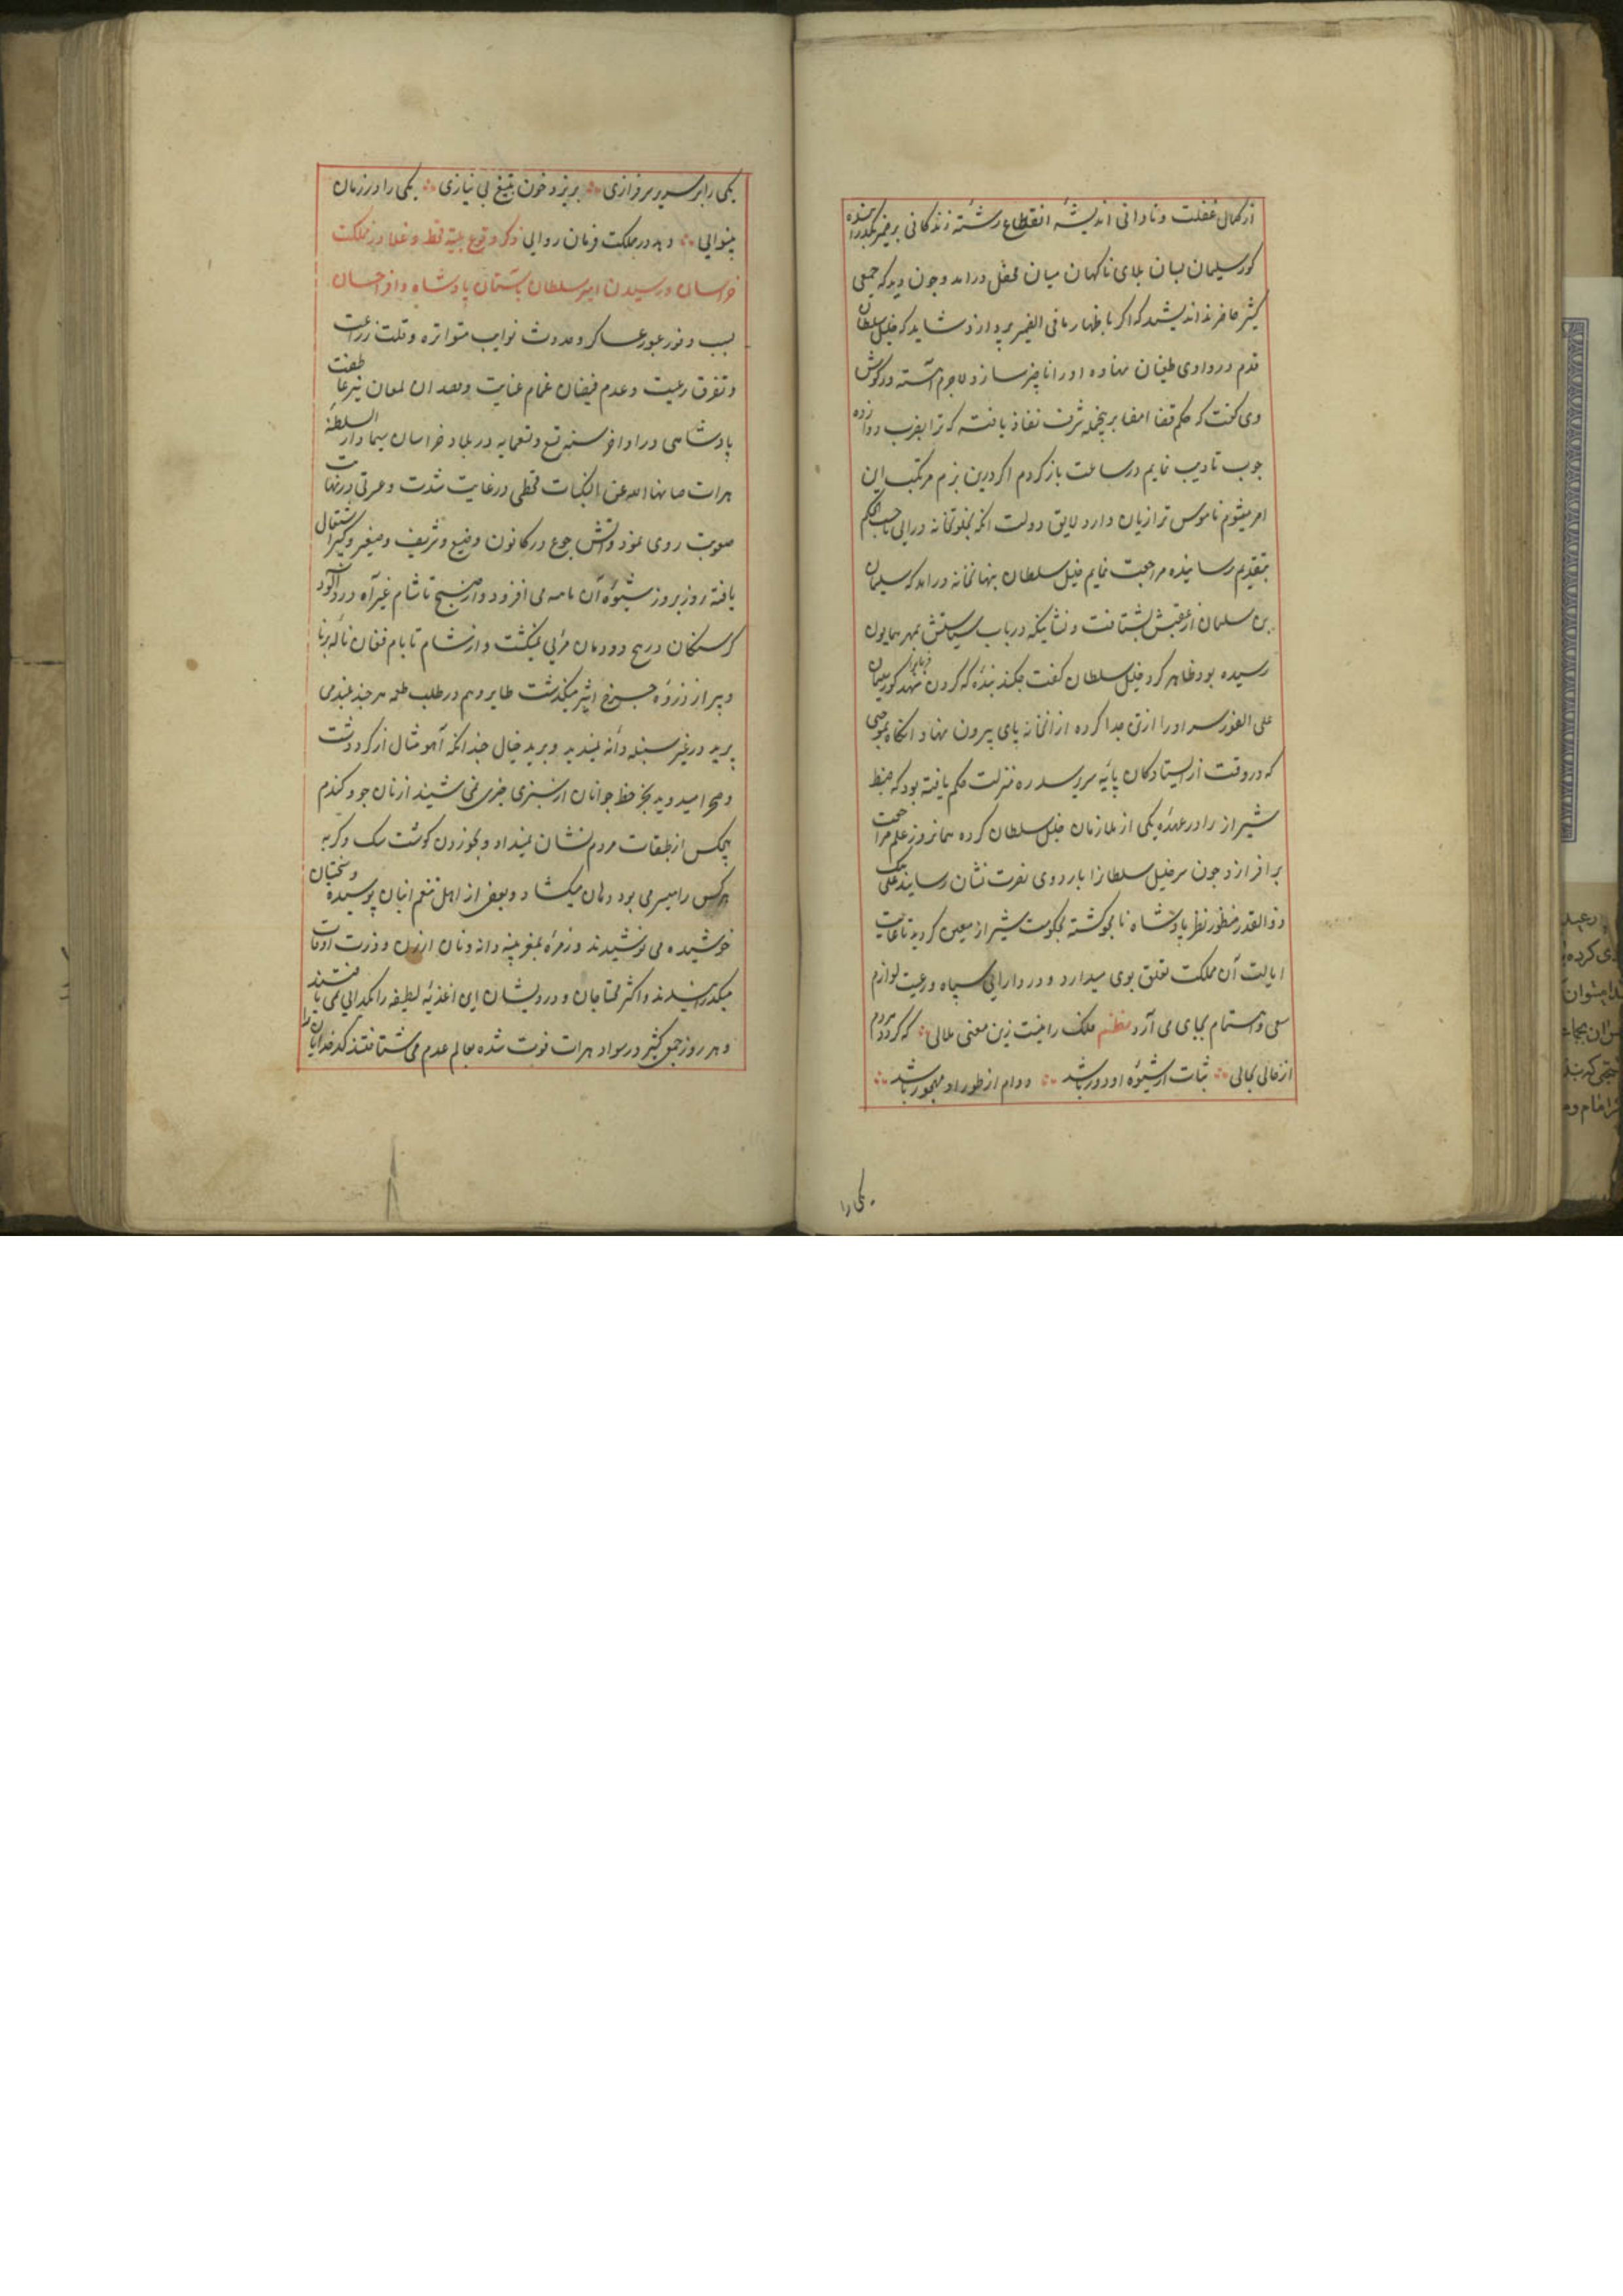 از کمال غفلت و نادانی اندیشهٔ انقطاع رشتهٔ زندگانی بر ضمیر نگذرانیده
کور سلیمان بسان بلای ناکهان میان محفل درامد و چون دید که جمعی
کثیر حاضرند اندیشید که اکر باظهار مافی الضمیر پردازد شاید که خلیل سلطان
قدم در وادی طغیان نهاده او را ناچیز سازد لاجرم آهسته در کوش
وی کفت که حکم قضا امضا برینجمله شرف نفاذ یافته که ترا بضرب دوازده
چوب تادیب نمایم و رساعت بازکردم اکر درین بزم مرتکب این
امر میشوم ناموس ترا زیان دارد لایق دولت انکه بخلوتخانه درایی تا حسب الحکم
بتقدیم رسانیده مراجعت نمایم خلیل سلطان بنهانخانه درامد کور سلیمان
بن سلمان از عقبش بشتافت و نشانیکه درباب سیاستش بمهر همایون
رسیده بود ظاهر کرد خلیل سلطان کفت چکند بنده که کردن ننهد فرمانرا کور سلیمان
علی الفور سر او را از تن جدا کرده از انخانه پای بیرون نهاد و انکاه بموجبی
که در وقت از ایستادکان پایه سریر سدره منزلت حکم یافته بود که ضبط
شیراز را در عهدهٔ یکی از ملازمان خلیل سلطان کرده همانروز علم مراجعت
برافرازد چون سر خلیل سلطانرا باردوی نصرت نشان رسانید علی بیک
ذوالقدر منظور نظر پادشاه نامجو کشته بحکومت شیراز معین کردید تا غایت
ایالت آن مملکت تعلق بوی میدارد و در دارایی سپاه و رعیت لوازم
سعی و اهتمام بجای می آرد نظم فلک را نیست زین معنی ملالی که کردد مردم
از حالی بحالی ثبات از شیوهٔ او دور باشد دوام از طور او مهجور باشد
یکی را
یکی را بر سریر سرفرازی بریزد خون بتیغ بی نیازی یکی را در زمان
بینوایی دهد در مملکت فرمان روایی ذکر وقوع بلیه قحط و غلا در مملکت
خراسان و رسیدن امیر سلطان بستان پادشاه وافر احسان
بسبب وفور عبور عساکر و حدوث نوایب متواتره و قلت زراعت
و تفرق رعیت و عدم فیضان غمام عنایت و فقدان لمعان نیر عاطفت
پادشاهی در اواخر سنه تسع و تسعمایه در بلاد خراسان سیما دار السلطنه
هرات صانها الله عن النکبات قحطی در غایت شدت و عسرتی در نهایت
صعوبت روی نمود و آتش جوع در کانون وضیع و شریف و صغیر و کبیر اشتعال
یافته روز بروز شیوهٔ آن نامه می افزود و از صبح تا شام غیر آه درد آلود
کرسنکان در هیچ دودمان مرئی نمیکشت و از شام تا بام فغان نالهٔ برنا
و پیر از ذروهٔ چرخ اثیر میکذشت طایر وهم در طلب طعمه هر چند بلند می
پرید در غیر سنبله دانه نمیدید و برید خیال چندانکه آهو مثال از کرد دشت
و صحرا میدوید بجز خط جوانان از سبزی چیزی نمی شنید از نان جو و کندم
هیچکس از طبقات مردم نشان نمیداد و بخوردن کوشت سک و کربه
هرکس را میسر می بود دهان میکشاد و بعضی از اهل تنعم انبان پوسیده و سختیان
خوشیده می نوشیدند و زمرهٔ بمغز پنبه دانه و نان ارزن و ذرت اوقات
میکذرانیدند و اکثر محتاجان و درویشان این اغذیهٔ لطیفه را بکدایی نمی یافتند
و هر روز جمعی کثیر در سواد هرات فوت شده بعالم عدم می شتافتند کدخدایان را